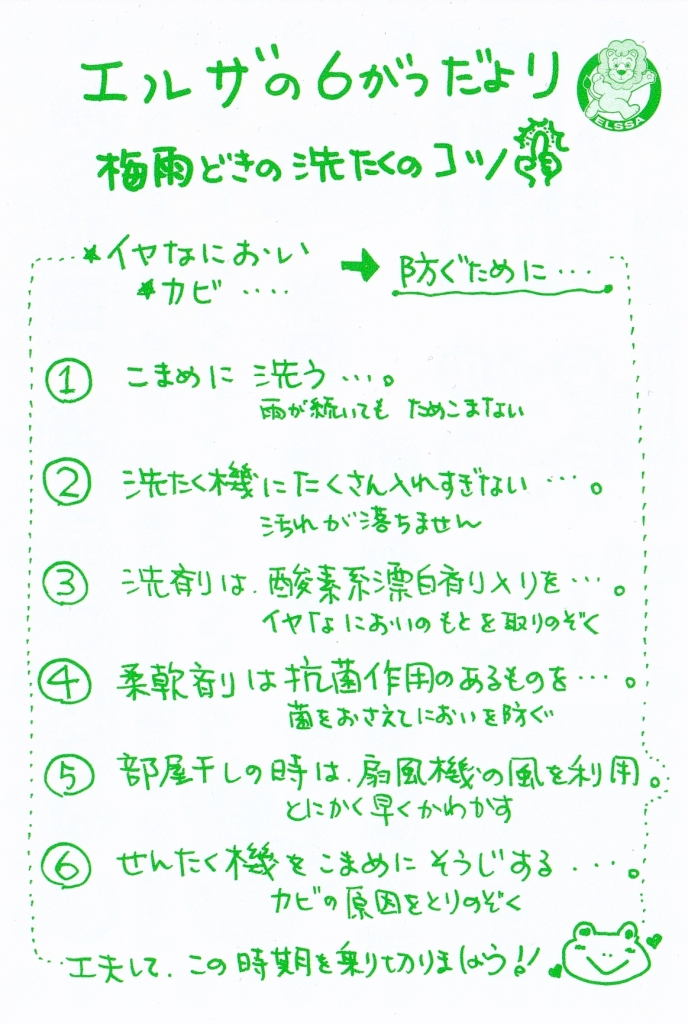 エルザの6がつだより
ELSSA
梅雨どきの洗たくのコツ
*イヤなにおい
*カビ ････
➡ 防ぐために…
① こまめに 洗う …。
雨が続いても ためこまない
② 洗たく機にたくさん入れすぎない …。
汚れが落ちません
③ 洗剤は、酸素系漂白剤入りを…。
イヤなにおいのもとを取りのぞく
④ 柔軟剤は抗菌作用のあるものを…。
菌をおさえてにおいを防ぐ
⑤ 部屋干しの時は、扇風機の風を利用。
とにかく早くかわかす
⑥ せんたく機をこまめに そうじする ･･･。
カビの原因をとりのぞく
工夫して、この時期を乗り切りましょう!!